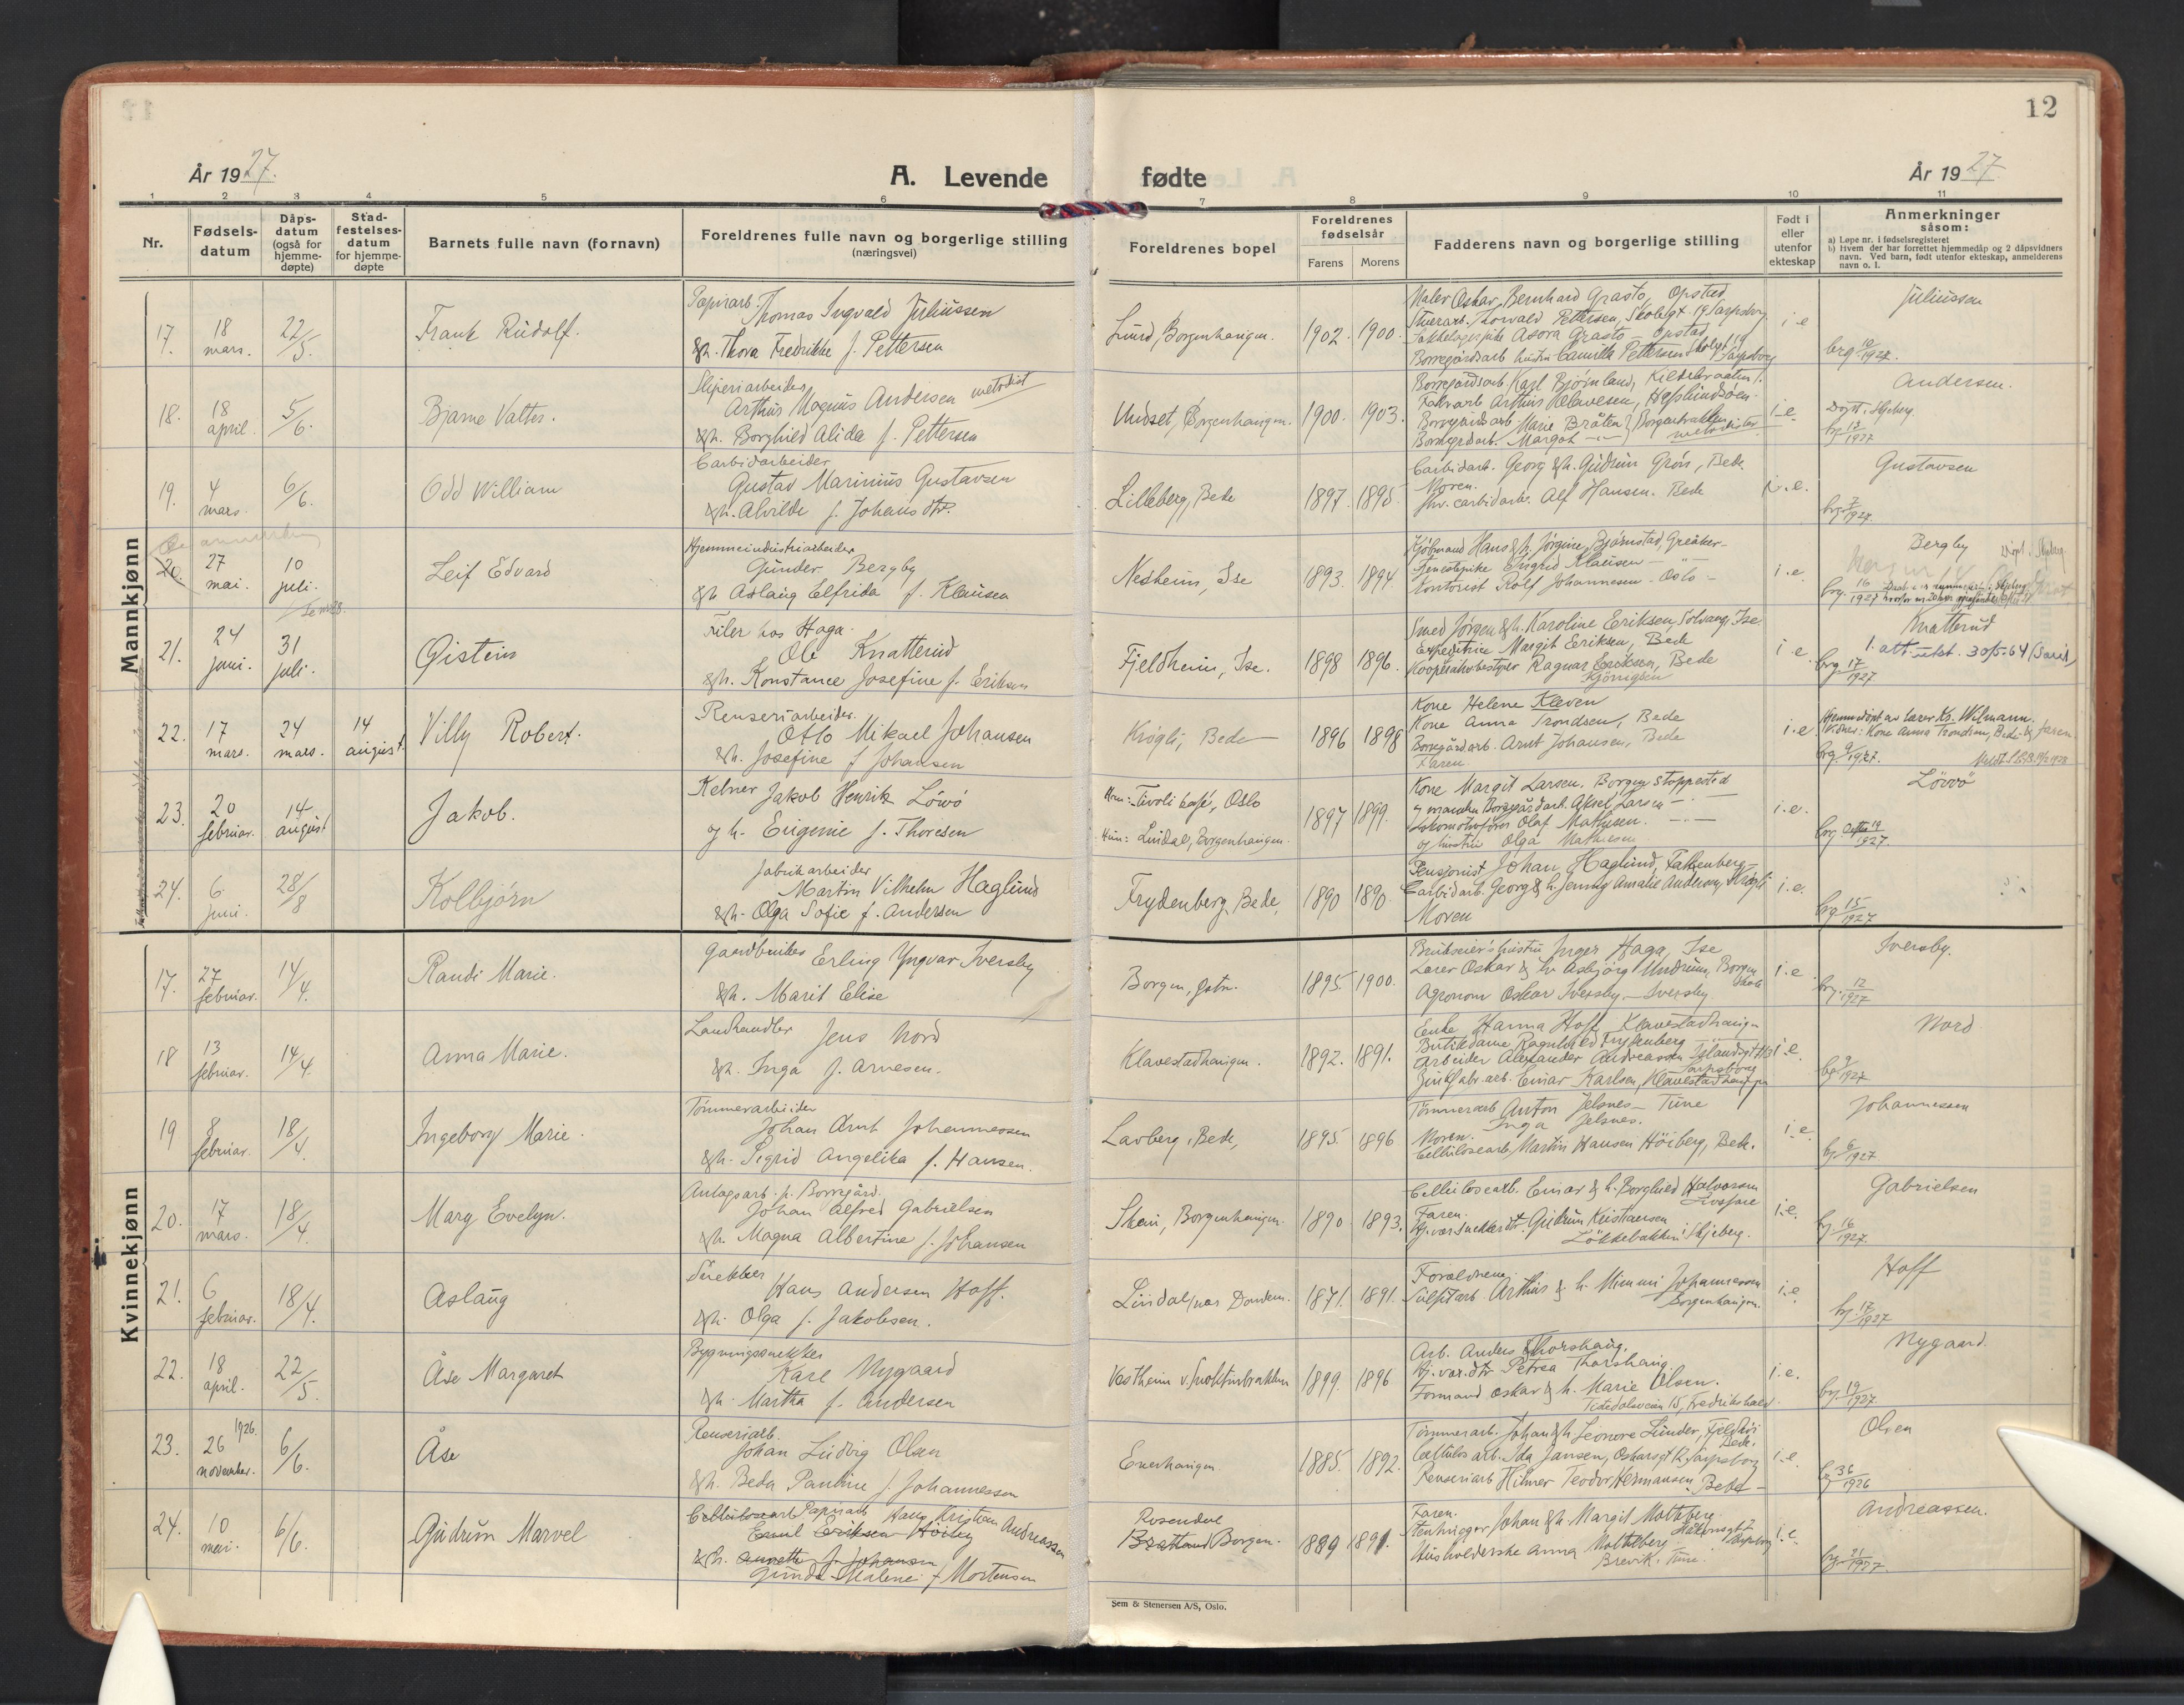 12
År 1927.
A. Levende fødte
År 1927
1 2 3 4 5 6 7 8 9 10 11
Nr.
Fødsels-
datum
Dåps-
datum
(også for
hjemme-
døpte)
Stad-
festelses-
datum
for hjemme-
døpte
Barnets fulle navn (fornavn)
Foreldrenes fulle navn og borgerlige stilling
(næringsvei)
Foreldrenes bopel
Foreldrenes
fødselsår
Farens Morens
Fadderens navn og borgerlige stilling
Født i
eller
utenfor
ekteskap
Anmerkninger
såsom:
a) Løpe nr. i fødselsregisteret
b) Hvem der har forrettet hjemmedåp og 2 dåpsvidners
navn. Ved barn, født utenfor ekteskap, anmelderens
navn o. l.
Mannkjønn
17. 18 mars. 22/5. Frank Rudolf.
Papirarb. Thomas Ingvald Juliussen
&h. Thora Fredrikke f. Pettersen
Lund, Borgenhaugen. 1902. 1900.
Maler Oskar Bernhard Grasto, Opstad
Stuerarb. Thorvald Pettersen, Skolegt 19 Sarpsborg
Asora Grasto Opstad
Borregårdsarb hustru Camilla Pettersen Skolegt 19 Sarpsborg
i e
Juliussen
brg 10/1927.
18. 18 april. 5/6. Bjarne Valter.
Sliperiarbeider
Arthur Magnus Andersen metodist
&h. Borghild Alida f. Pettersen
Undset, Borgenhaugen. 1900. 1903.
Borregårdsarb. Karl Bjørnland, Kildebraaten
Fabrarb Arthur Olavesen, Hafslundsøen
Borregårdsarb Marie Bråten
Borregrdarb. Margot
metodister
i e
Andersen.
Døpt i Skjeberg.
bg 13/1927
19. 4 mars. 6/6. Odd William
Carbidarbeider
Gustav Marinius Gustavsen
&h. Alvilde f. Johansdtr.
Lilleberg, Bede 1897. 1895.
Carbidarb. Georg &h. Gudrun Grøn, Bede
Moren.
carbidarb. Alf Hansen. Bede
i.e.
Gustavsen
brg. 7/1927.
20. 27 mai. 10 juli. Leif Edvard
Hjemmeindustriarbeider
Gunder Bergby
&h Aslaug Elfrida f. Klausen
Nesheim, Ise 1893. 1894.
Kjøbmand Hans &h. Jørgine Bjørnstad, Greåker
Tjenestepike Ingrid Klausen
Kontorist Rolf Johannesen - Oslo -
i.e.
Bergby
brg. 16/1927
21. 24 juni. 31 juli. Øistein
Filer hos Haga.
Ole Knatterud
&h. Konstance Josefine f. Eriksen
Fjeldheim, Ise. 1898 1896.
Smed Jørgen &h. Karoline Eriksen, Solvang, Ise
Expeditrice Margit Eriksen, Bede
Kooperativbestyrer Ragnar Eriksen, Bede
i e.
Knatterud
1. att. utst. 30/5.64
brg 17/1927
22. 17 mars. 24 mars. 14 august. Villy Robert.
Renseriarbeider.
Otto Mikael Johansen
&h. Josefine f Johansen
Krogli, Bede 1896 1898
Kone Helene Kleven
Kone Anna Trondsen, Bede
Borregårdarb. Arnt Johansen, Bede
Faren.
i.e.
Hjemmedøpt av lærer Kr. Wilmann.
Vidner: Kone Anna Trondsen, Bede & faren
brg. 9/1927.
23. 20 februar. 14 august Jakob.
Kelner Jakob Henrik Löwö
og h. Eugenie f. Thoresen
Han: Tivoli kafé, Oslo
Hun: Lindal, Borgenhaugen. 1897 1899.
Kone Margit Larsen. Borgen stoppested
og manden Borregårdarb. Aksel Larsen
Lokomotivfører Olaf Mathisen.
og hustru Olga Mathisen
i.e.
Löwö
brg 19/1927.
24. 6 juni. 28/8 Kolbjørn
Fabrikarbeider
Martin Vilhelm Haglund
&h. Olga Sofie f. Andersen
Frydenberg, Bede, 1890 1890.
Pensjonist Johan Haglund, Falkenberg
Carbidarb. Georg & h. Jenny Amalie Andersen, Krogli
Moren
i.e.
brg 15/1927
Kvinnekjønn
17. 27 februar. 14/4. Randi Marie.
Gaardbruker Erling Yngvar Iversby
&h. Marit Elise
Borgen, gstn. 1895. 1900.
Bruksier's hustru Inger Haga, Ise
Lærer Oskar & h Asbjørg Undrum, Borgen skole
Agronom Oskar Iversby - Iversby
i e.
Iversby.
brg. 12/1927
18 13 februar. 14/4. Anna Marie.
Landhandler Jens Nord
&h. Inga f. Arnesen.
Klavestadhaugen. 1892. 1891.
Enke Hanna Hoff, Klavestadhaugen
Butikdame Ragnhild Frydenberg
Arbeider Alexander Andreassen Sarpsborg
Einar Karlsen, Klavestadhaugen
i.e.
Nord
bg 9/1927
19 8 februar. 18/4. Ingeborg Marie.
Tömmerarbeider
Johan Arnt Johannessen
&h. Sigrid Angelika f. Hansen.
Lavberg, Bede, 1895. 1896
Tømmerarb Anton Jelsnes - Tune
Inga Jelsnes.
Moren.
Cellulosearb. Martin Hansen Höiberg, Bede.
i.e.
Johannessen
bg. 6/1927
20. 17 mars. 18/4. Mary Evelyn.
Anlagsarb. p. Borregård.
Johan Alfred Gabrielsen
&h. Magna Albertine f. Johansen
Skein, Borgenhaugen. 1890. 1893.
Cellulosearb. Einar & h. Borghild Halvorsen
Faren.
Hj.vær. snekkerdt. Gudrun Kristiansen
Lökkebakken i Skjeberg.
i.e.
Gabrielsen
bg. 16/1927
21. 6 februar. 18/4. Aslaug
Snekker
Hans Andersen Hoff.
&h. Olga f. Jakobsen.
Lindal, nær Dondern. 1871. 1891.
Forældrene.
Sulfitarb Arthur & h. Mimmi Johannessen
Borgenhaugen.
i.e.
Hoff
bg. 17/1927
22. 18 april. 22/5. Åse Margaret
Bygningssnekker
Kare Nygaard
&h. Martha f. Andersen
1899. 1896
Arb. Anders Thorshaug.
Hj.vær.dtr Petrea Thorshaug.
Formand Oskar & h. Marie Olsen.
Tistedalsveien 15, Fredrikshald.
i.e.
Nygaard.
bg. 19/1927.
23. 26 november. 1926. 6/6. Åse
Renseriarb.
Johan Ludvig Olsen
&h. Beda Pauline f. Johannessen
Enerhaugen 1885. 1892.
Tömmerarb. Johan &h. Leonore Lunder, Fjeldhøi
Bede.
Cellulosarb. Ida Jansen, Oskarsgt 12 Sarpsborg
Renseriarb. Hilmer Teodor Hermansen, Bede
i.e.
Olsen
bg 36/1926
24. 10 mai. 6/6. Gudrun Marvel
Cellulosearb Papirarb Hans Kristian Andreassen
Emil Eriksen Höiby
&h. Annette f. Johansen
Gunda Malene f Mortensen
Rosendal
Borgen. 1889 1891.
Faren.
Stenhugger Johan &h. Margit Molteberg
Husholderske Anna Molteberg
Brevik. Tune.
i.e.
Andreassen.
bg. 21/1927.
Sem & Stenersen A/S, Oslo.